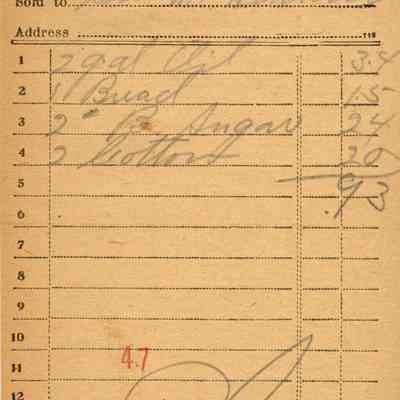 Sold to
Address
1 2 gal Oil 34
2 1 Bread 15
3 2 " B. Sugar 24
4 2 Cotton 20
5 .93
6
7
8
9
10
11 47
12